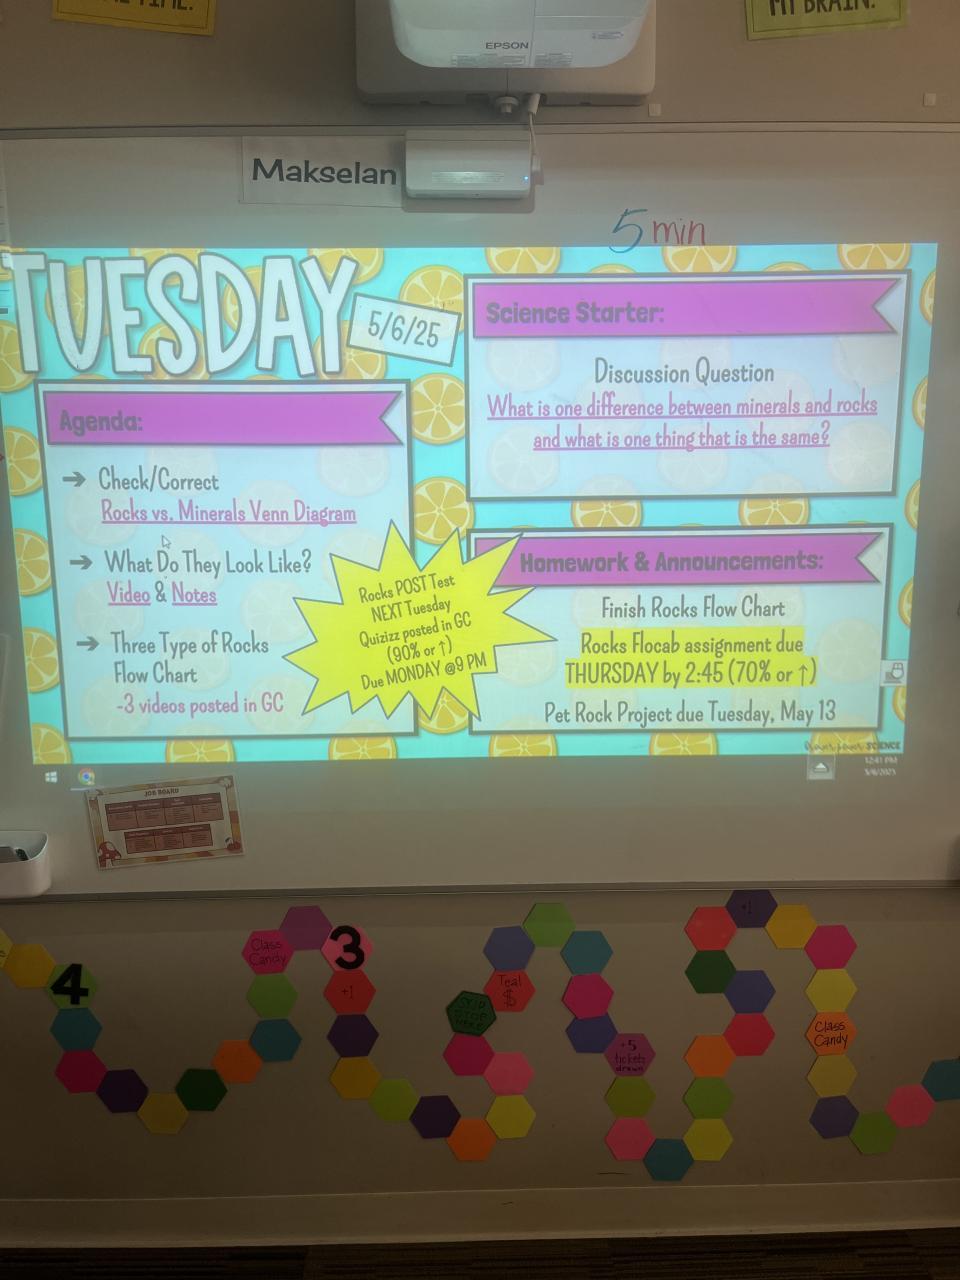 MY BRAIN.
EPSON
Makselan
5 min
TUESDAY
5/6/25
Agenda:
➔ Check/Correct
Rocks vs. Minerals Venn Diagram
➔ What Do They Look Like?
Video & Notes
➔ Three Type of Rocks
Flow Chart
-3 videos posted in GC
Rocks POST Test
NEXT Tuesday
Quizizz posted in GC
(90% or ↑)
Due MONDAY @9 PM
Science Starter:
Discussion Question
What is one difference between minerals and rocks
and what is one thing that is the same?
Homework & Announcements:
Finish Rocks Flow Chart
Rocks Flocab assignment due
THURSDAY by 2:45 (70% or ↑)
Pet Rock Project due Tuesday, May 13
SCIENCE
12:41 PM
5/6/2025
JOB BOARD
4
Class
Candy
3
+1
SKIP
STOP
HERE
Teal
$
+5
tickets
drawn
+1
Class
Candy